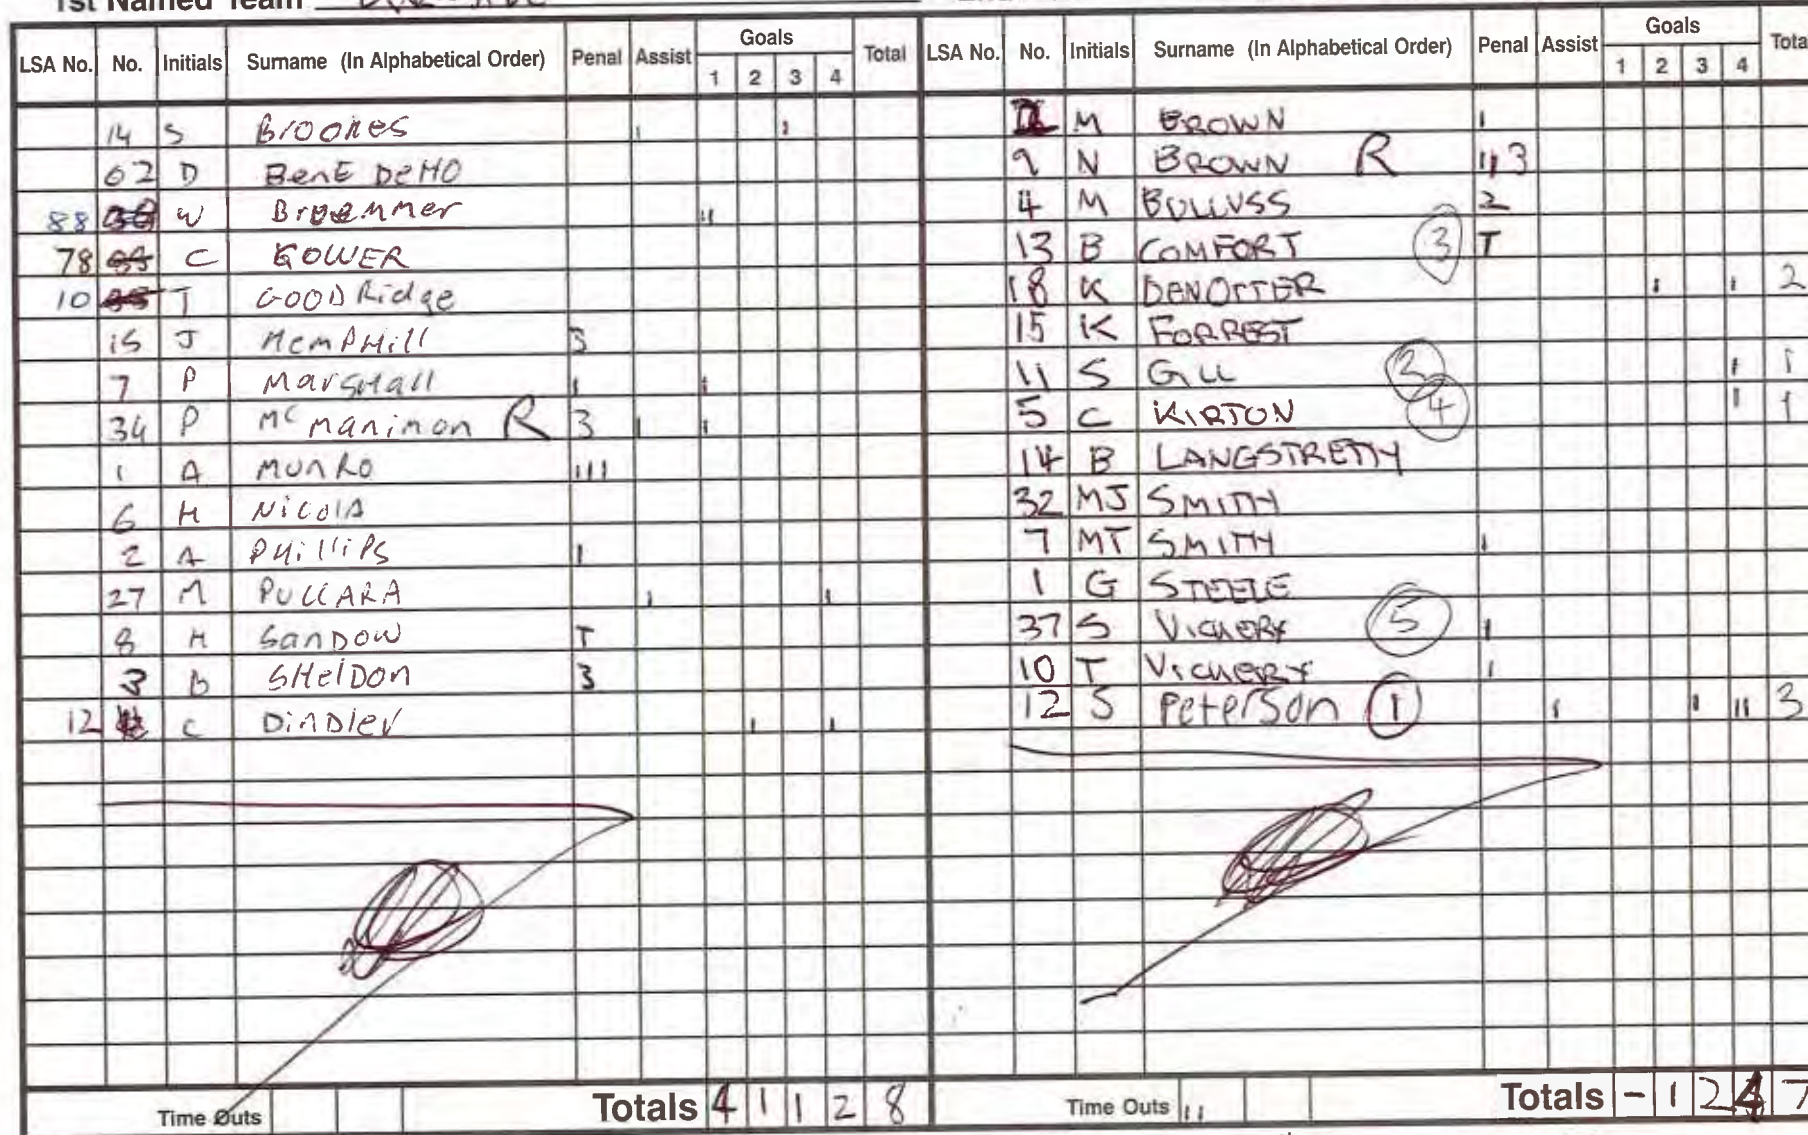 1st Named Team
LSA No. No. Initials Surname (In Alphabetical Order) Penal Assist Goals 1 2 3 4 Total
14 S Brookes ı ı
62 D BenE DeMO
88 W Broemmer ıı
78 C GOWER
10 T GOODRidge
15 J HemPHill 3
7 P Marshall ı ı
34 P Mc manimon R 3 ı ı
1 A MUNRO ııı
6 H NicolA
2 A PHilliPS ı
27 M PULLARA ı ı
8 H SanDOW T
3 B SHelDon 3
12 C DinDler ı ı
Time Outs Totals 4 1 1 2 8
LSA No. No. Initials Surname (In Alphabetical Order) Penal Assist Goals 1 2 3 4 Total
M BROWN ı
9 N BROWN R ıı3
4 M BULLUSS 2
13 B COMFORT 3 T
18 K DENOTTER ı ı 2
15 K FORREST
11 S GILL ı 1
5 C KIRTON 4 ı 1
14 B LANGSTRETH
32 MJ SMITH
7 MT SMITH ı
1 G STEELE
37 S VICKERY 5 ı
10 T VICKERY ı
12 S Peterson 1 ı ı ıı 3
Time Outs ıı Totals - 1 2 4 7